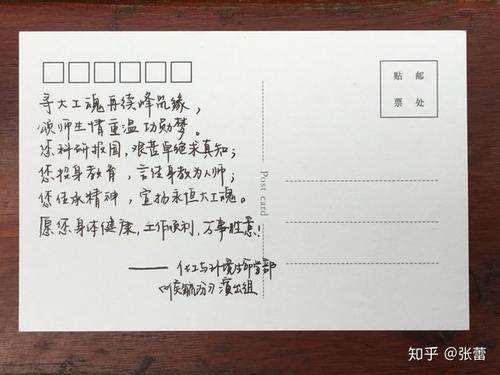 贴 邮
票 处
寻大工魂再续峰缘，
颂师生情重温功勋梦。
您科研报国，艰苦卓绝求真知；
您投身教育，言传身教为人师；
您传承精神，宣扬永恒大工魂。
愿您身体健康，工作顺利，万事胜意！
——化工与环境生命学部
《侯毓汾》演出组
Post card
知乎 @张蕾